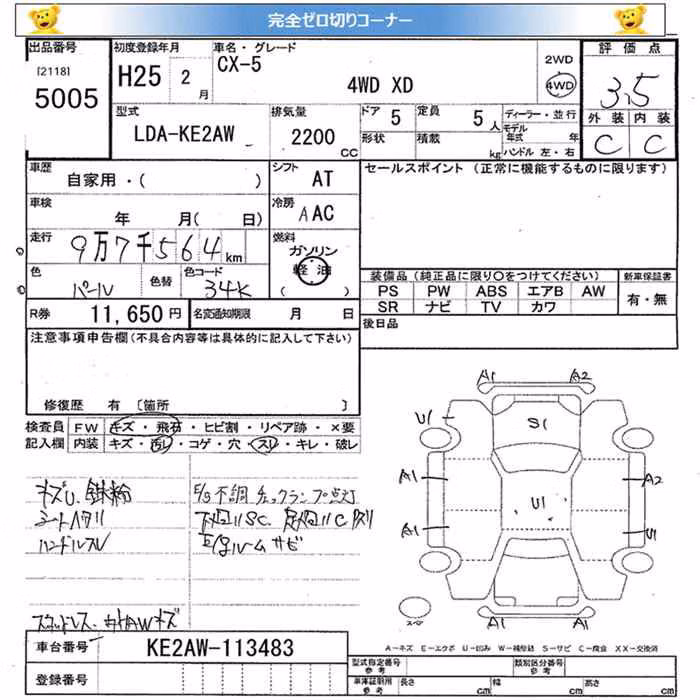 完全ゼロ切りコーナー
出品番号 初度登録年月 車名・グレード 評価点
[2118] 5005
H25 2月
CX-5
4WD XD
2WD
4WD
3.5
外装 内装
C C
型式 排気量 ドア 定員 ディーラー・並行
LDA-KE2AW 2200 CC 5 5人
モデル年式 年
形状 積載 kg ハンドル 左・右
車歴 シフト セールスポイント(正常に機能するものに限ります)
自家用・( ) AT
車検 冷房
年 月( 日) AAC
走行 燃料
9万7千564km ガソリン
軽油
( )
色 色替 色コード
パール 34K
装備品(純正品に限り○をつけてください) 新車保証書
PS PW ABS エアB AW 有・無
SR ナビ TV カワ
R券 11,650円 名変通知期限 月 日
後日品
注意事項申告欄(不具合内容等は具体的に記入して下さい)
修復歴 有 [箇所 ]
検査員 FW キズ・飛石・ヒビ割・リペア跡・×要
記入欄 内装 キズ・汚レ・コゲ・穴・スリ・キレ・破レ
A1 A2
U1 S1
A1 A2
U1
A1 U1
A1 A1
キズU. 鉄粉
シートヘタリ
ハンドルスレ
E/g不調 チェックランプ点灯
下廻りSC.
ルームサビ
スタッドレス.
A-キズ E-エクボ U-凹み W-補修跡 S-サビ C-腐食 XX-交換済
車台番号 KE2AW-113483
登録番号
型式指定番号 参考 類別区分番号 参考
車庫証明用 参考 長さ cm 幅 cm 高さ cm